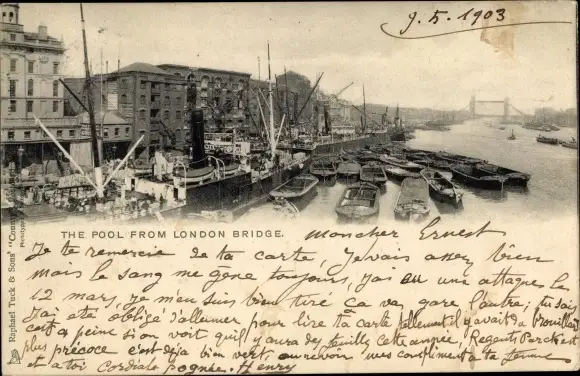 9.5.1903
THE POOL FROM LONDON BRIDGE.
Mon cher Ernest
Je te remercie de ta carte, je vais assez bien
mais le sang me gêne toujours, j'ai eu une attaque le
12 mars, je m'en suis bien tiré ça va, gare l'autre; tu sais
j'ai été obligé d'allumer pour lire ta carte tellement il y avait du brouillard
c'est à peine si on voit qu'il y aura des feuilles cette année, Regents Park est
plus précoce c'est déjà bien vert, au revoir mes compliments à ta femme
et à toi cordiale poignée. Henry
Raphael Tuck & Sons'